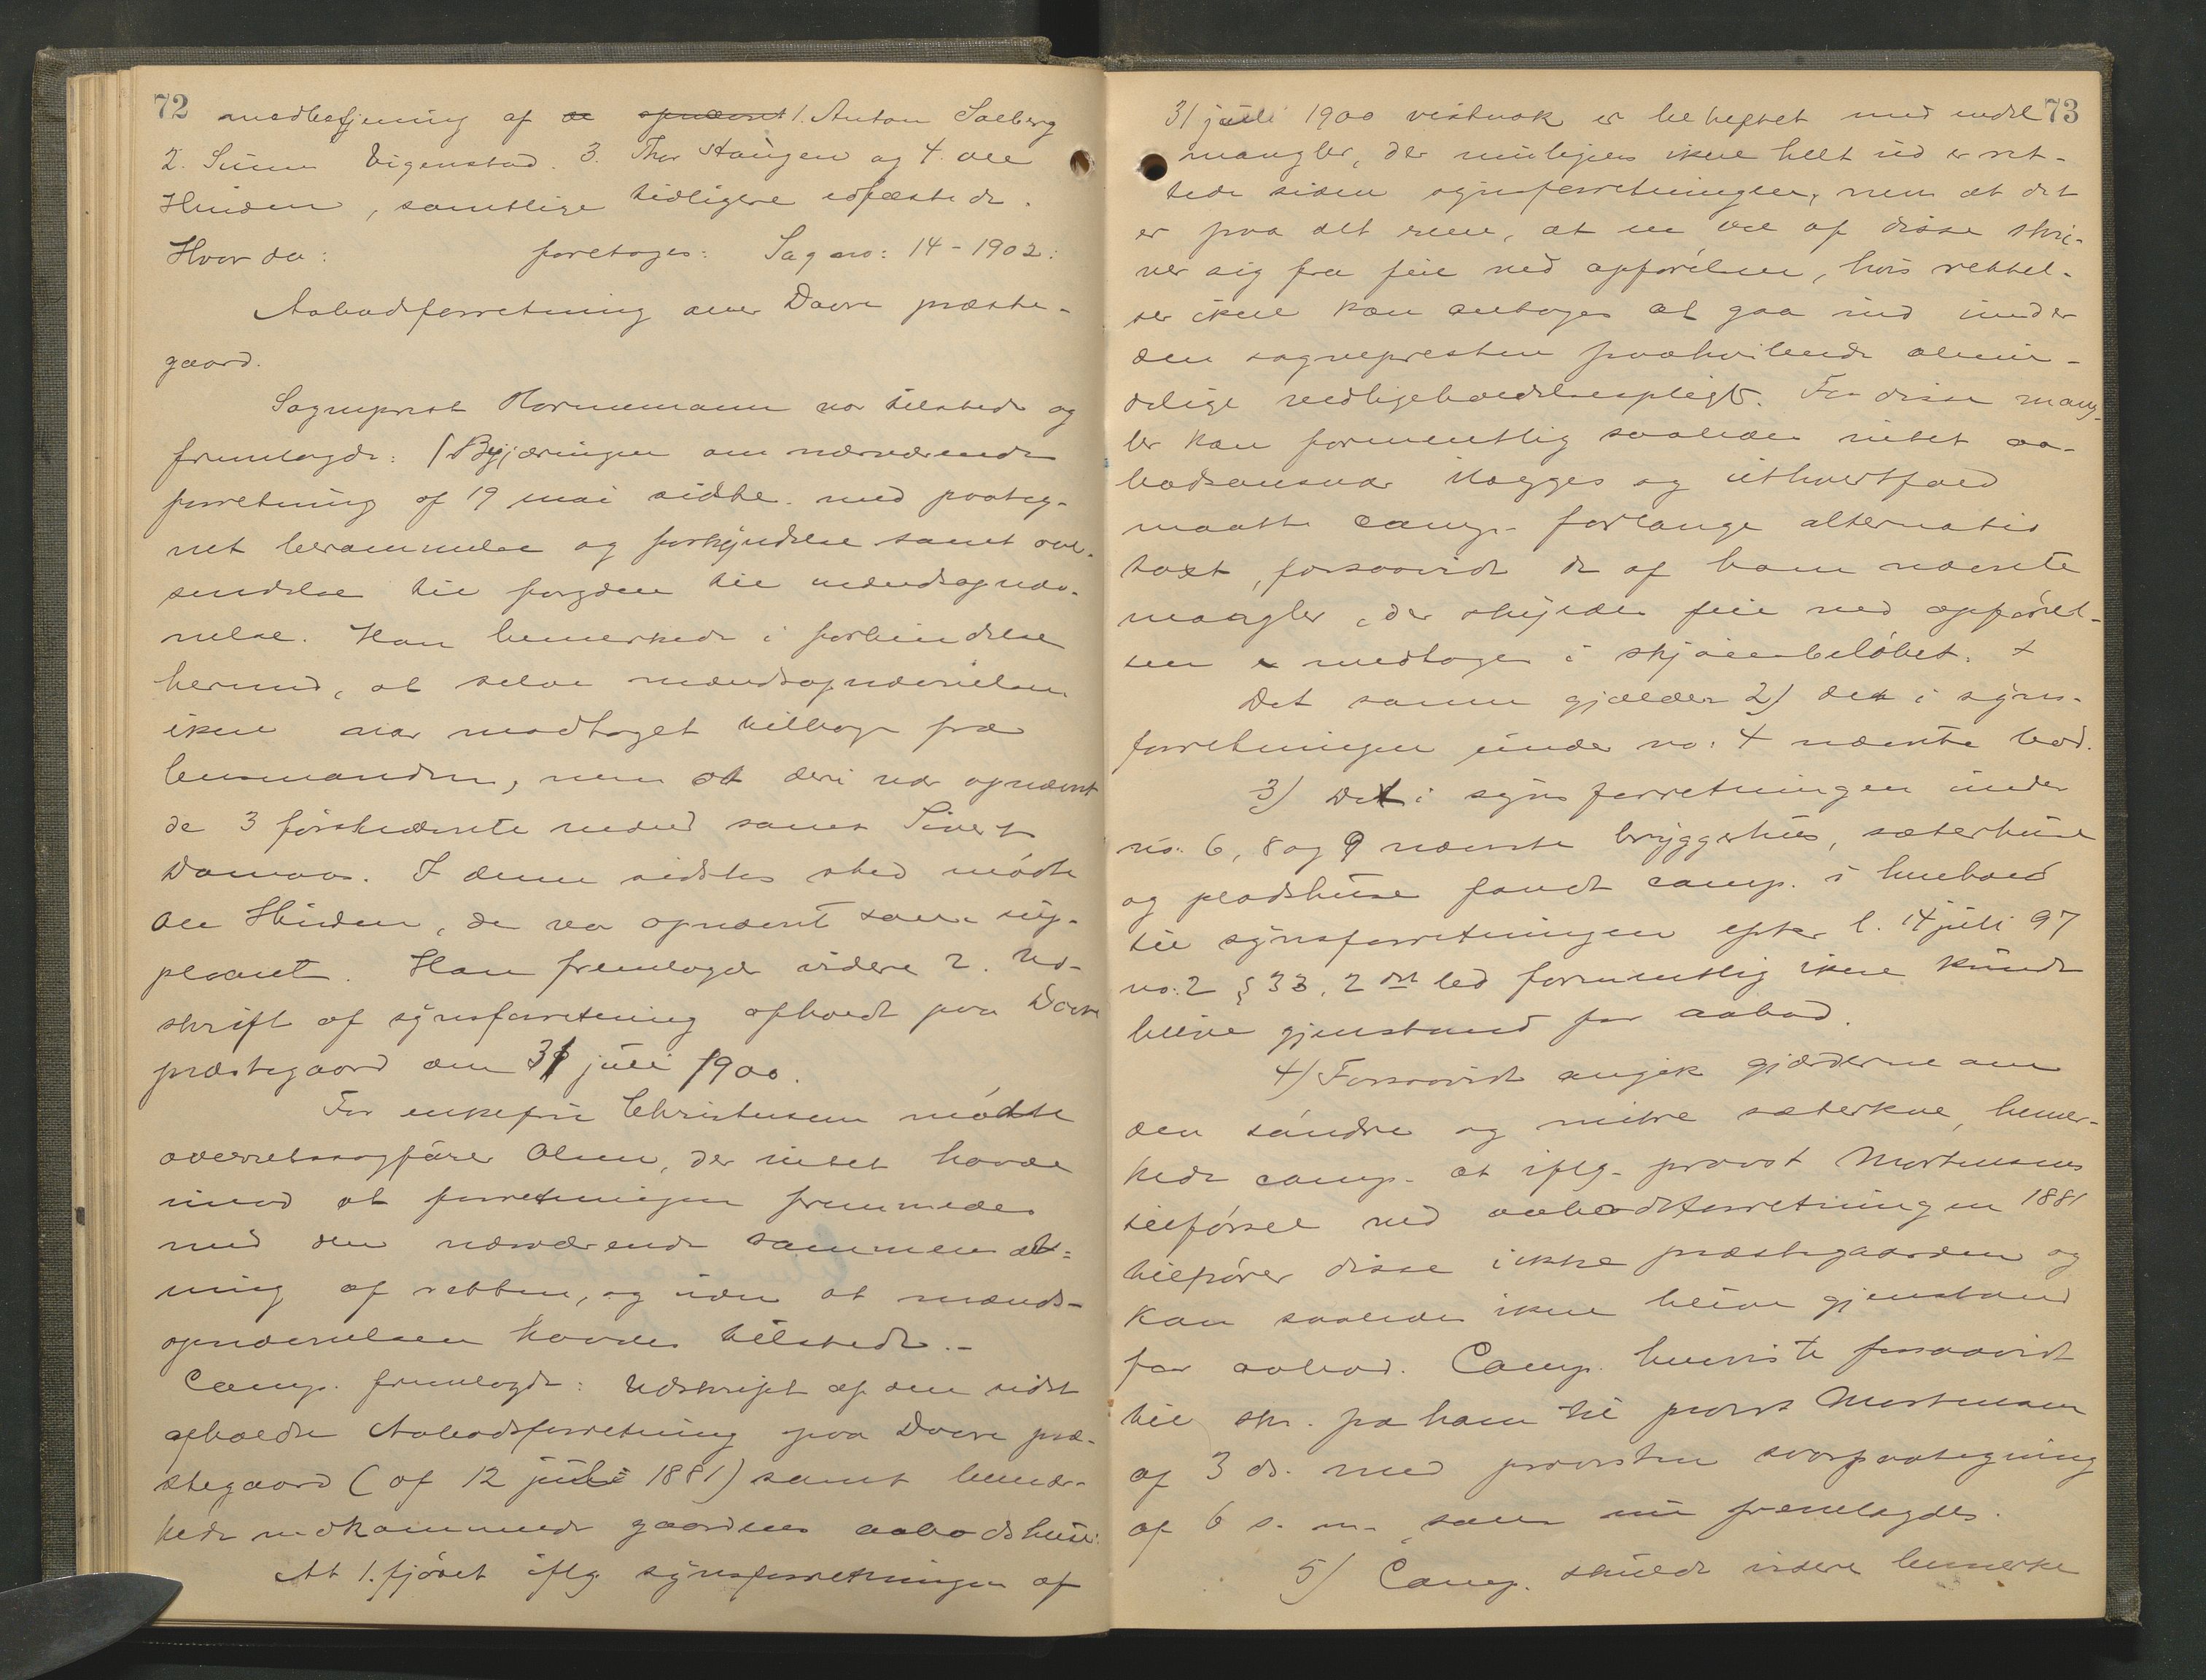 72 medbetjening af de opnævnt 1. Anton Solberg
2. Simen Vigenstad. 3. Thor Haugen og 4. Ole
Hinden, samtlige tidligere edfæstede.
Hvor da: foretoges: Sag no: 14-1902:
Aabodsforretning over Dovre præste-
gaard.
Sogneprest Hornemann var tilstede og
fremlagde: 1 Begjæringen om nærværende
forretning af 19 mai sidstl. med paateg-
net berammelse og forkyndelse samt over-
sendelse til fogden til mændsopnæv-
nelse. Han bemerkede i forbindelse
hermed, at selve mændsopnævnelsen
ikke var modtaget tilbage fra
lensmanden, men at deri var opnævnt
de 3 førstnævnte mænd samt Sivert
Domaas. I denne sidstes sted mødte
Ole Hinden, der var opnævnt som sup-
pleant. Han fremlagde videre 2. Ud-
skrift af synsforretning afholdt paa Dovre
præstegaard den 31 juli 1900.
For enkefru Christensen mødte
overretssagfører Olsen, der intet havde
imod at forretningen fremmedes
med den nærværende sammensæt-
ning af retten, og uden at mænds-
opnævnelsen havdes tilstede.-
Comp. fremlagde: Udskrift af den sidst
afholdte Aabodsforretning paa Dovre præ-
stegaard (af 12 juli 1881) samt bemær-
kede vedkommende gaardens aabodshuse:
At 1. fjøset iflg synsforretningen af
73
31 juli 1900 vistnok er beheftet med endel
mangler, der muligens ikke helt ud er ret-
tede siden synsforretningen, men at det
er paa det rene, at en del af disse skri-
ver sig fra feil ved opførelsen, hvis rettel-
se ikke kan antages at gaa ind under
den sognepresten paahvilende almin-
delige vedligeholdelsespligt. For disse mang-
ler kan formentlig saaledes intet aa-
bodsansvar ilægges og ithvertfald
maatte comp. forlange alternativ
taxt, forsaavidt de af ham nævnte
mangler, der skyldes feil ved opførel-
sen medtages i skjønsbeløbet. +
Det samme gjælder 2) den i syns-
forretningen under no: 4 nævnte bod.
3) Det i synsforretningen under
no. 6, 8 og 9 nævnte bryggerhus, sæterhuse
og pladshuse fandt comp. i henhold
til synsforretningen efter l. 14 juli 97
no. 2 § 33, 2det led formentlig ikke kunde
blive gjenstand for aabod.
4) Forsaavidt angik gjærderne om
den søndre og nedre sæterkve, bemer-
kede comp. at iflg. provst Mortensens
tilførsel ved aabodsforretningen 1881
tilhører disse ikke præstegaarden og
kan saaledes ikke blive gjenstand
for aabod. Comp. henviste forsaavidt
til skr. fra ham til provst Mortensen
af 3 ds. med provstens svarpaategning
af 6 s. m. som nu fremlagdes.
5) Comp. skulde videre bemerke